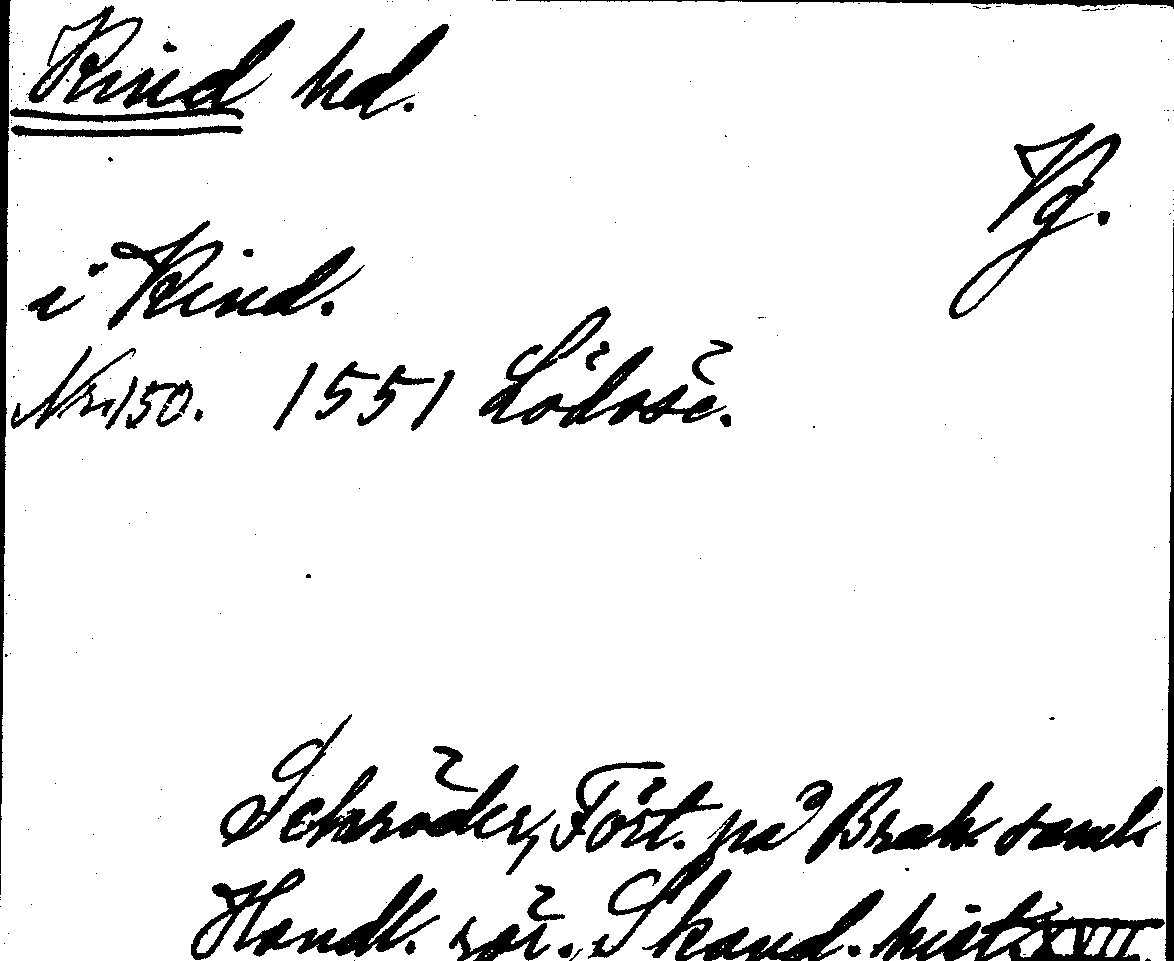 Kind hd.
Vg.
i Kind.
Nr. 150. 1551 Lödöse.
Schröder, Fört. på Brah. saml.
Handl. rör. Skand. hist. XVII.